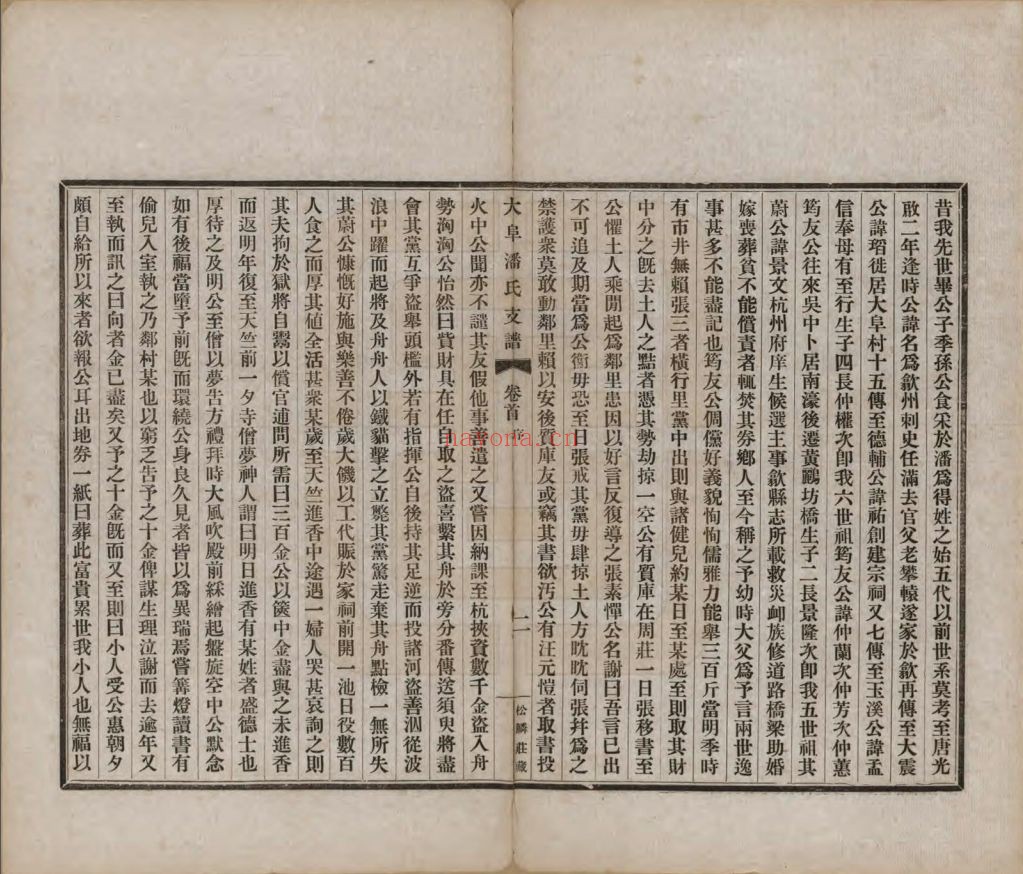 昔我先世畢公子季孫公食采於潘爲得姓之始五代以前世系莫考至唐光
啟二年逢時公諱名爲歙州刺史任滿去官父老攀轅遂家於歙再傳至大震
公諱瑫徙居大阜村十五傳至德輔公諱祐創建宗祠又七傳至玉溪公諱孟
信奉母有至行生子四長仲權次卽我六世祖筠友公諱仲蘭次仲芳次仲蕙
筠友公往來吳中卜居南濠後遷黃鸝坊橋生子二長景隆次卽我五世祖其
蔚公諱景文杭州府庠生候選主事歙縣志所載救災卹族修道路橋梁助婚
嫁喪葬貧不能償責者輒焚其券鄉人至今稱之予幼時大父爲予言兩世逸
事甚多不能盡記也筠友公倜儻好義貌恂恂儒雅力能舉三百斤當明季時
有市井無賴張三者橫行里黨中出則與諸健兒約某日至某處至則取其財
中分之旣去土人之黠者憑其勢劫掠一空公有質庫在周莊一日張移書至
公懼土人乘閒起爲鄰里患因以好言反復導之張素憚公名謝曰吾言已出
不可追及期當爲公衞毋恐至日張戒其黨毋肆掠土人方眈眈伺張幷爲之
禁護衆莫敢動鄰里賴以安後質庫友或竊其書欲汚公有汪元愷者取書投
大阜潘氏支譜
卷首 序
二
松鱗莊藏
火中公聞亦不譴其友假他事善遣之又嘗因納課至杭挾資數千金盜入舟
勢洶洶公怡然曰貲財具在任自取之盜喜繫其舟於旁分番傳送須臾將盡
會其黨互爭盜舉頭檻外若有指揮公自後持其足逆而投諸河盜善泅從波
浪中躍而起將及舟舟人以鐵貓擊之立斃其黨驚走棄其舟點檢一無所失
其蔚公慷慨好施與樂善不倦歲大饑以工代賑於家祠前開一池日役數百
人食之而厚其値全活甚衆某歲至天竺進香中途遇一婦人哭甚哀詢之則
其夫拘於獄將自鬻以償官逋問所需曰三百金公以篋中金盡與之未進香
而返明年復至天竺前一夕寺僧夢神人謂曰明日進香有某姓者盛德士也
厚待之及明公至僧以夢吿方禮拜時大風吹殿前綵繪起盤旋空中公默念
如有後福當墮予前旣而環繞公身良久見者皆以爲異瑞焉嘗篝燈讀書有
偷兒入室執之乃鄰村某也以窮乏吿予之十金俾謀生理泣謝而去逾年又
至執而訊之曰向者金已盡矣又予之十金旣而又至則曰小人受公惠朝夕
頗自給所以來者欲報公耳出地券一紙曰葬此富貴累世我小人也無福以